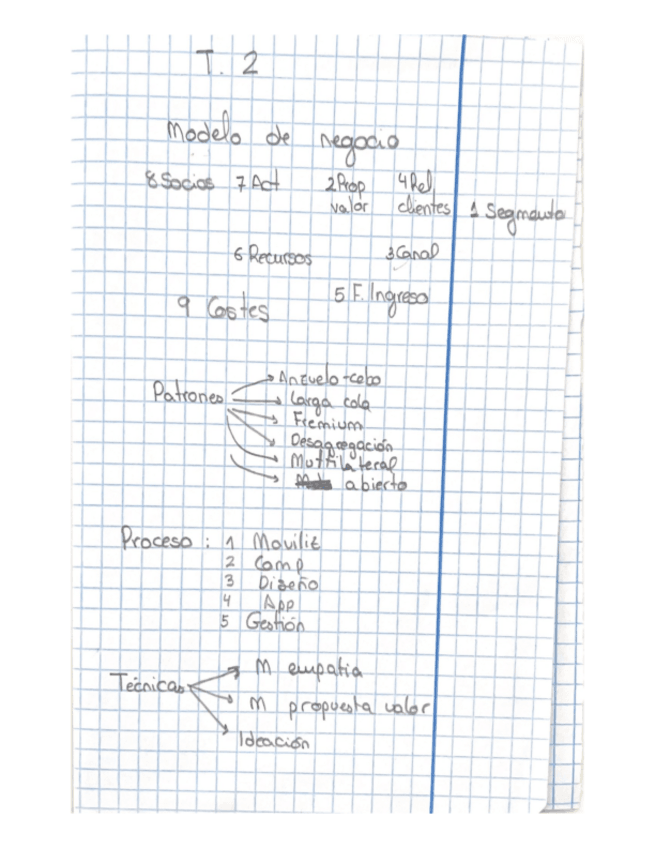 T. 2
Modelo de negocio
8 Socios 7 Act 2 Prop valor 4 Rel clientes 1 Segmento
6 Recursos 3 Canal
9 Costes 5 F. Ingreso
Patrones
Anzuelo-cebo
Larga cola
Fremium
Desagregación
Multilateral
abierto
Proceso: 1 Moviliz
2 Comp
3 Diseño
4 App
5 Gestión
Técnicas
M empatia
M propuesta valor
Ideación